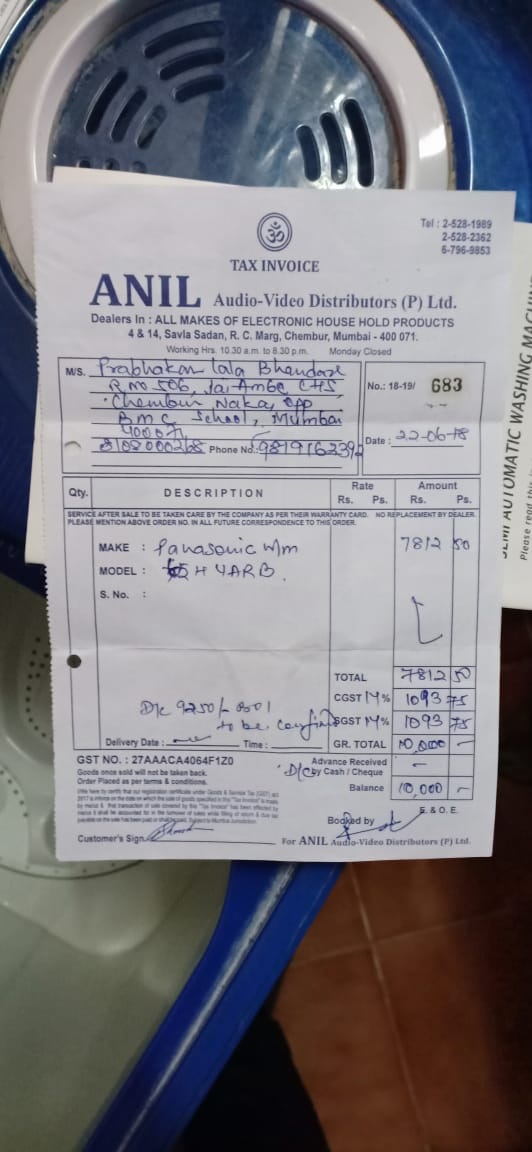 Tel : 2-528-1989
2-528-2362
6-796-9853
TAX INVOICE
ANIL Audio-Video Distributors (P) Ltd.
Dealers In : ALL MAKES OF ELECTRONIC HOUSE HOLD PRODUCTS
4 & 14, Savla Sadan, R. C. Marg, Chembur, Mumbai - 400 071.
Working Hrs. 10.30 a.m. to 8.30 p.m. Monday Closed
M/S. Prabhakar lala Bhandare
R.No 506, Jai Ambe CHS
Chembur Naka, opp
B.M.C School, Mumbai
400071
Phone No.:
No.: 18-19/ 683
Date : 22-06-18
Qty. DESCRIPTION Rate Amount
Rs. Ps. Rs. Ps.
SERVICE AFTER SALE TO BE TAKEN CARE BY THE COMPANY AS PER THEIR WARRANTY CARD. NO REPLACEMENT BY DEALER.
PLEASE MENTION ABOVE ORDER NO. IN ALL FUTURE CORRESPONDENCE TO THIS ORDER.
MAKE : Panasonic W/m 7812 50
MODEL : H YARB
S. No. :
TOTAL 7812 50
CGST 14% 1093 75
SGST 14% 1093 75
GR. TOTAL 10,000 -
D/c 9250/-
to be
Delivery Date : Time :
GST NO. : 27AAACA4064F1Z0
Goods once sold will not be taken back.
Order Placed as per terms & conditions.
Advance Received
D/C by Cash / Cheque -
Balance 10,000 -
E. & O. E.
Booked by
Customer's Sign.
For ANIL Audio-Video Distributors (P) Ltd.
SEMI AUTOMATIC WASHING MACHINE
Please read this